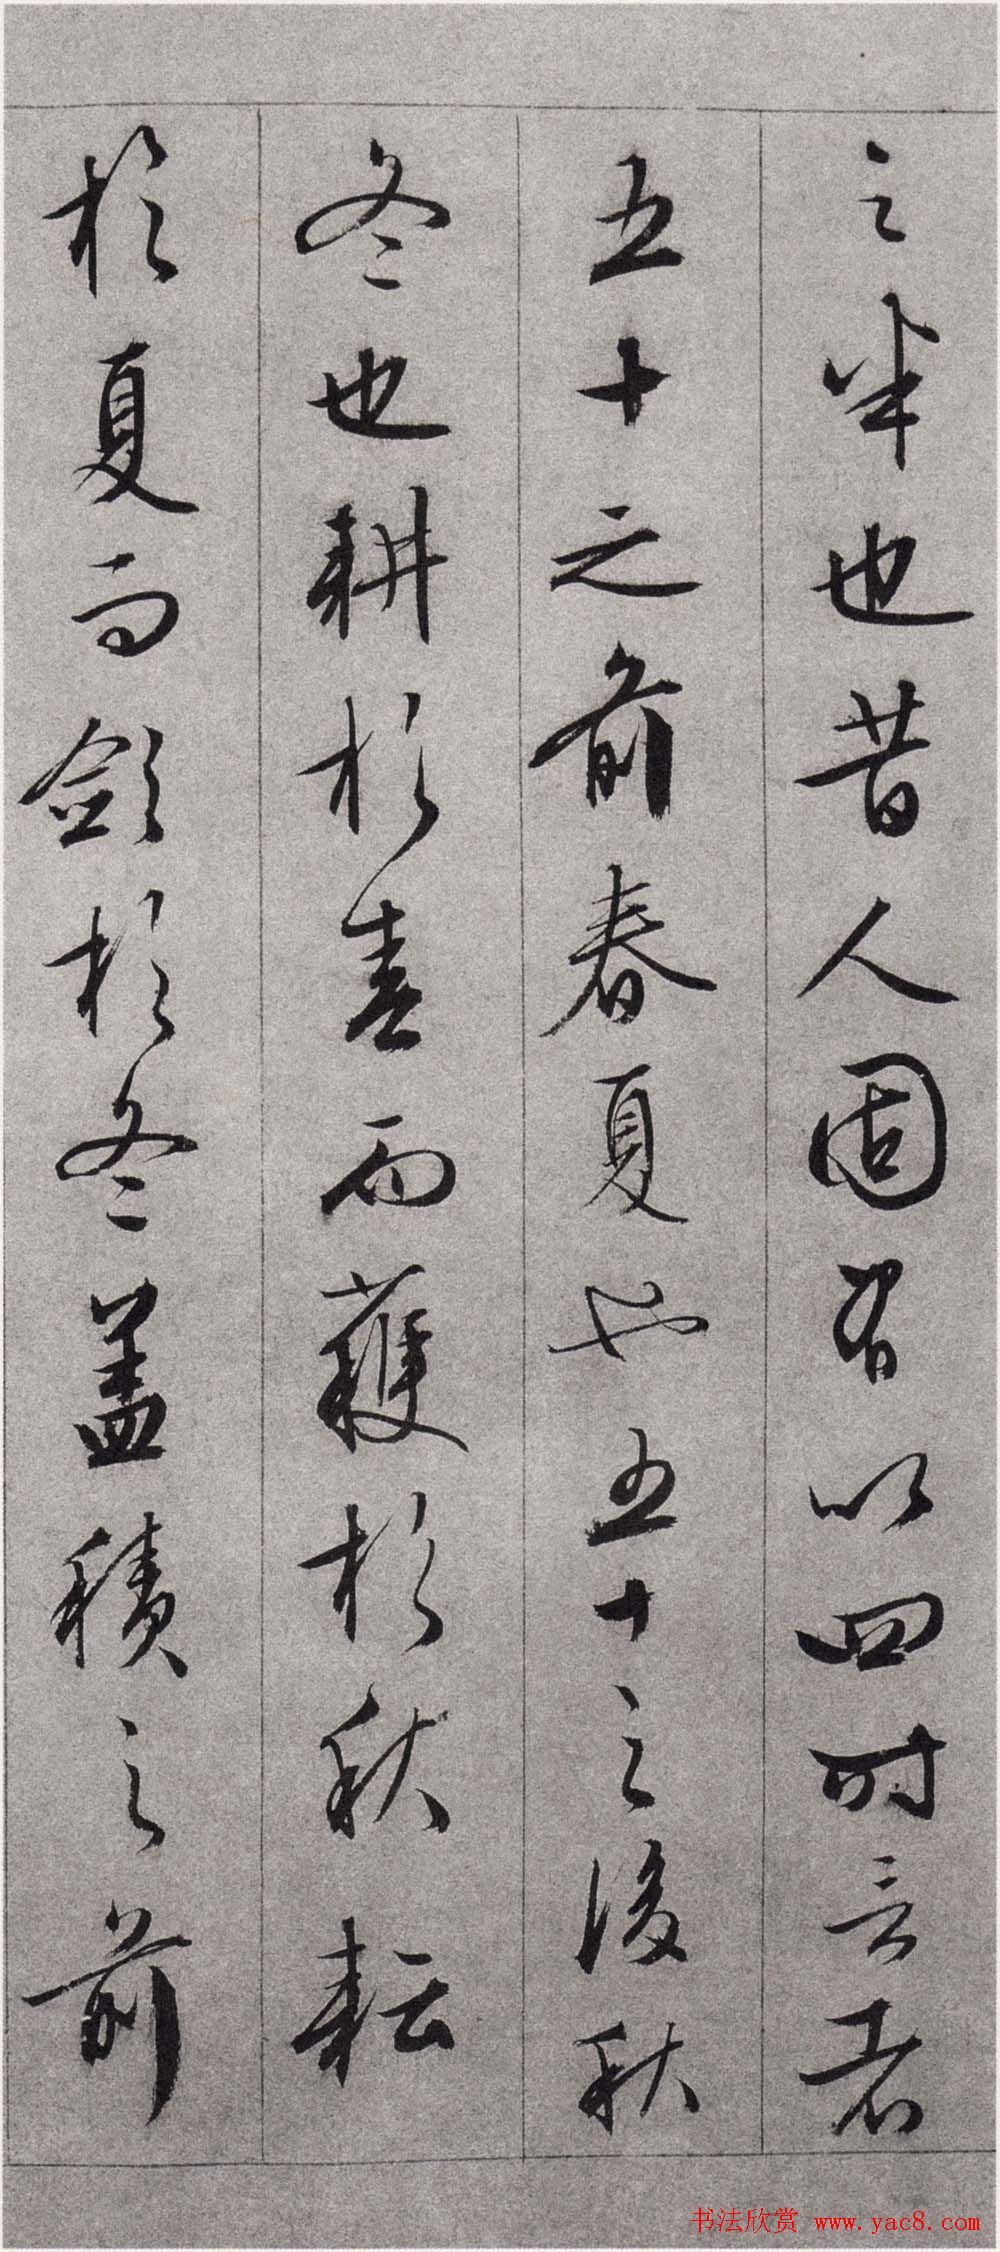 之半也昔人固有以四时言者
五十之前春夏也五十之後秋
冬也耕於春而穫於秋耘
於夏而斂於冬盖積之前
书法欣赏 www.yac8.com